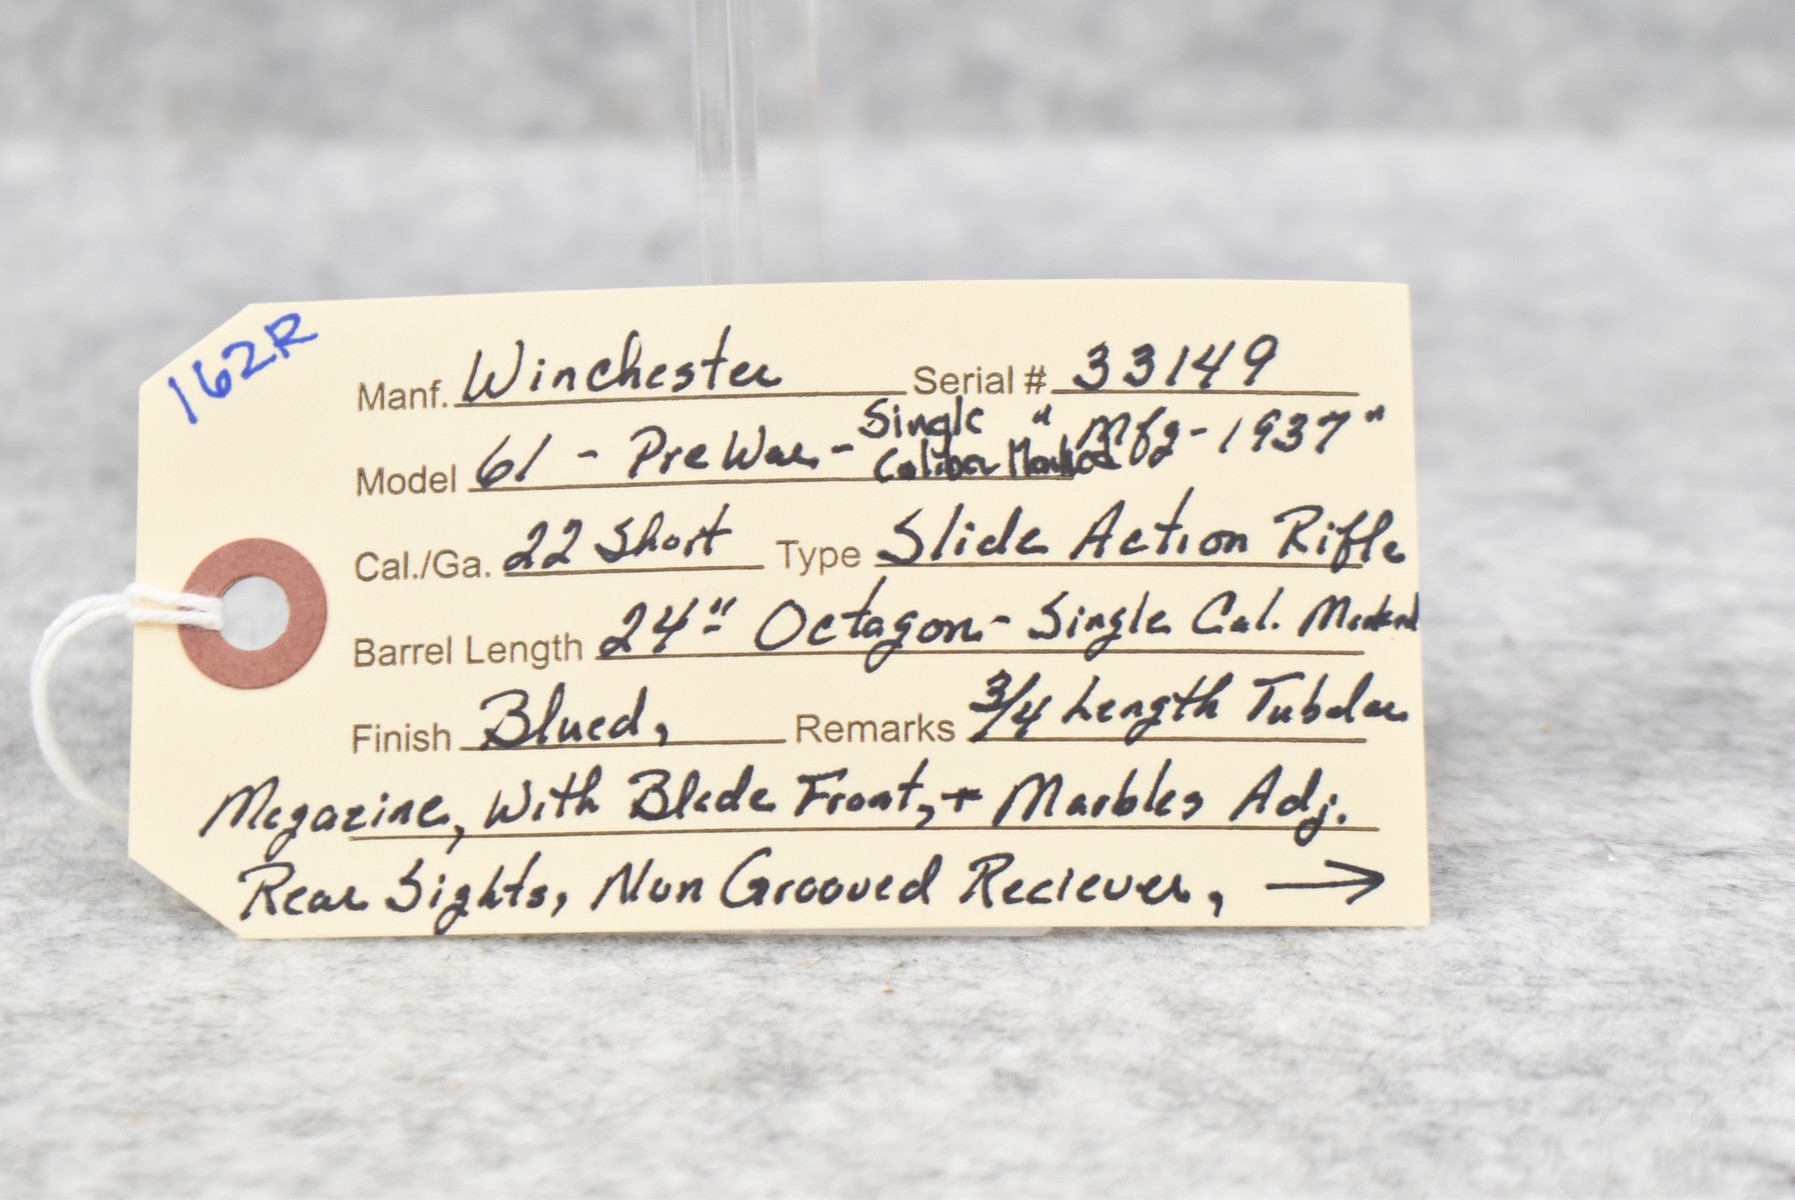 162R
Manf. Winchester Serial # 33149
Model 61 - Pre War - Single Caliber Marked "Mfg - 1937"
Cal./Ga. 22 Short Type Slide Action Rifle
Barrel Length 24" Octagon - Single Cal. Marked
Finish Blued, Remarks 3/4 Length Tubular
Magazine, With Blade Front, + Marbles Adj.
Rear Sights, Non Grooved Reciever, →